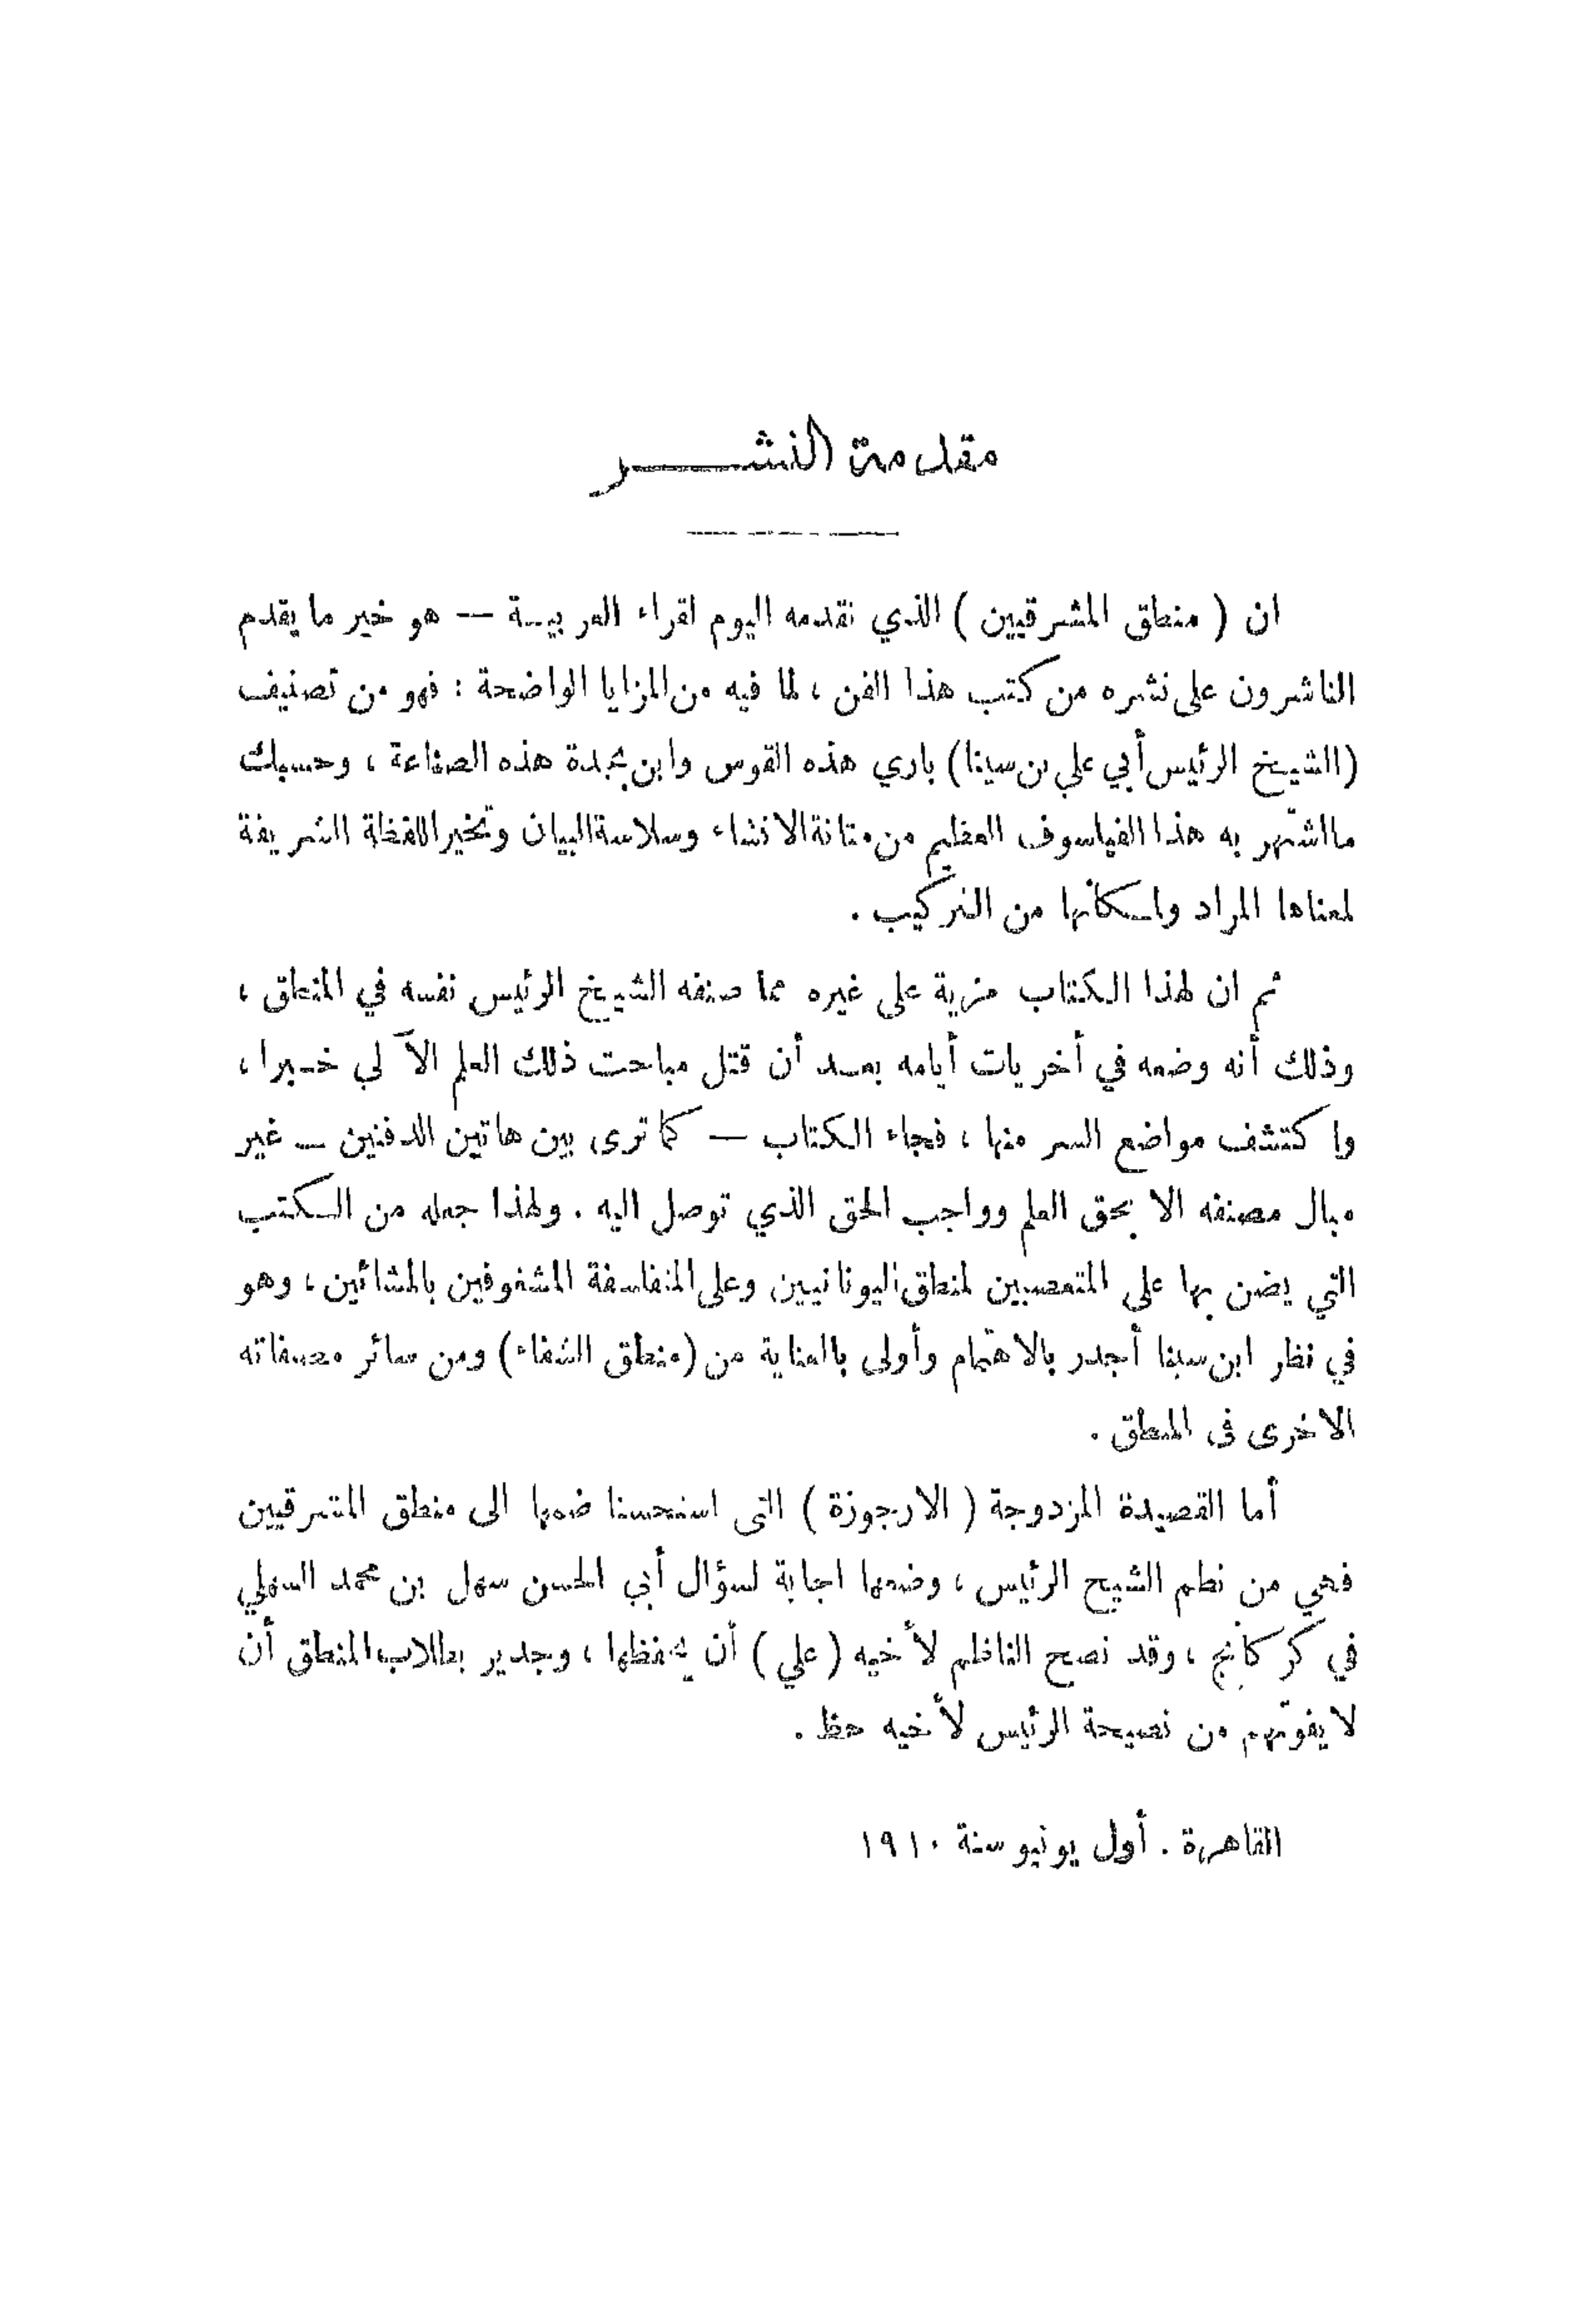 مقدمة النشر
ان ( منطق المشرقيين ) الذي نقدمه اليوم لقراء العربية — هو خير ما يقدم
الناشرون على نشره من كتب هذا الفن ، لما فيه من المزايا الواضحة : فهو من تصنيف
(الشيخ الرئيس أبي علي بن سينا) باري هذه القوس وابن بجدة هذه الصناعة ، وحسبك
ما اشتهر به هذا الفيلسوف العظيم من متانة الانشاء وسلاسة البيان وتخير اللفظة الشريفة
لمعناها المراد واسكانها من التركيب .
ثم ان لهذا الكتاب مزية على غيره مما صنفه الشيخ الرئيس نفسه في المنطق ،
وذلك أنه وضعه في أخريات أيامه بعد أن قتل مباحث ذلك العلم الآلي خبرا ،
واكتشف مواضع السر منها ، فجاء الكتاب — كما ترى بين هاتين الدفتين — غير
مبال مصنفه الا بحق العلم وواجب الحق الذي توصل اليه . ولهذا جعله من الكتب
التي يضن بها على المتعصبين لمنطق اليونانيين وعلى المتفلسفة المشغوفين بالمشائين ، وهو
في نظر ابن سينا أجدر بالاهتمام وأولى بالعناية من (منطق الشفاء) ومن سائر مصنفاته
الاخرى في المنطق .
أما القصيدة المزدوجة ( الارجوزة ) التى استحسنا ضمها الى منطق المشرقيين
فهي من نظم الشيخ الرئيس ، وضعها اجابة لسؤال أبي الحسن سهل بن محمد السهلي
في كركانج ، وقد نصح الناظم لأخيه ( علي ) أن يحفظها ، وجدير بطلاب المنطق أن
لا يفوتهم من نصيحة الرئيس لأخيه حظ .
القاهرة . أول يونيو سنة ١٩١٠